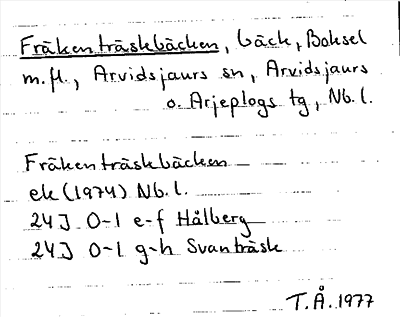 Fräkenträskbäcken, bäck, Boksel
m.fl., Arvidsjaurs sn, Arvidsjaurs
o. Arjeplogs tg, Nb.l.
Fräkenträskbäcken
ek (1974) Nb.l.
24J 0-1 e-f Hålberg
24J 0-1 g-h Svanträsk
T.Å. 1977